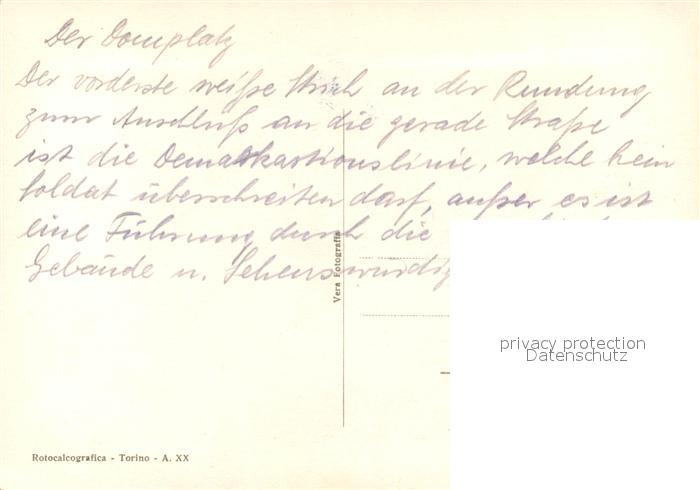 Der Domplatz
Der vorderste weiße Strich an der Rundung
zum Anschluß an die gerade Straße
ist die Demarkationslinie, welche kein
Soldat überschreiten darf, außer es ist
eine Führung durch die
Gebäude u. Sehenswürdig
Vera Fotografia
privacy protection
Datenschutz
Rotocalcografica - Torino - A. XX